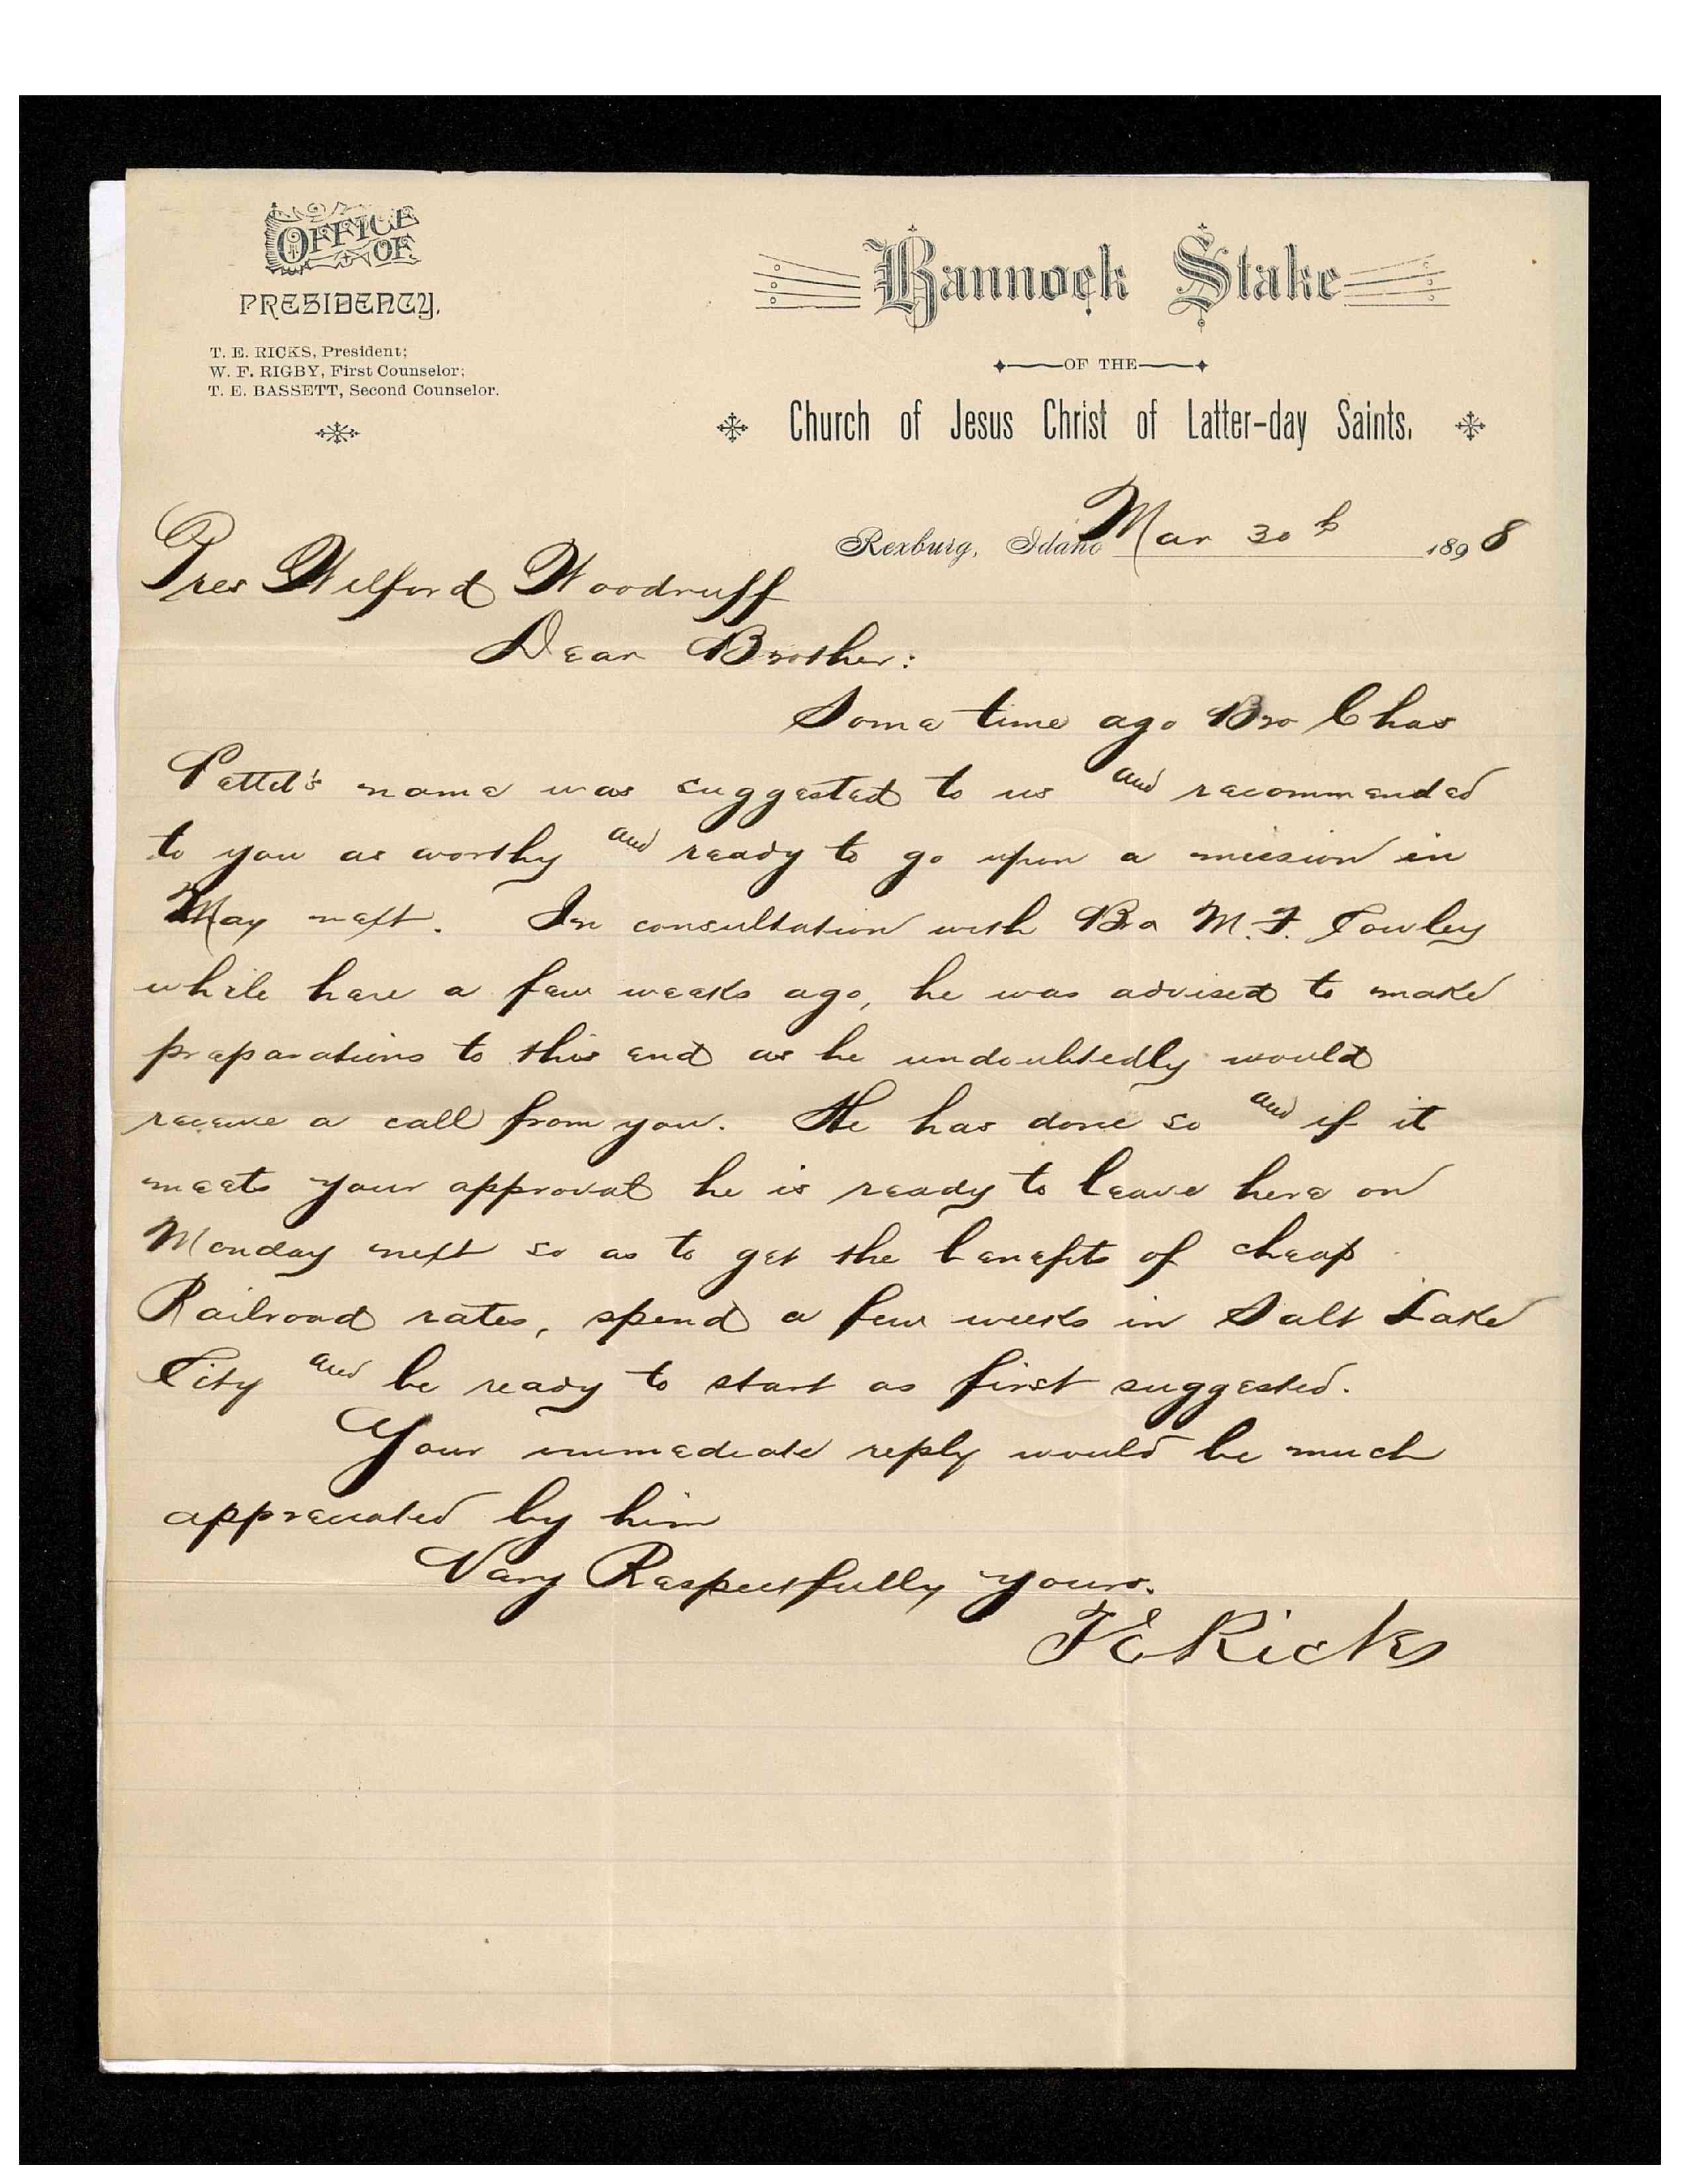 OFFICE
OF
PRESIDENCY.
T. E. RICKS, President;
W. F. RIGBY, First Counselor;
T. E. BASSETT, Second Counselor.
Bannock Stake
OF THE
Church of Jesus Christ of Latter-day Saints.
Rexburg, Idaho Mar 30th 1898
Pres Wilford Woodruff
Dear Brother:
Some time ago Bro Chas
name was suggested to us and recommended
to you as worthy and ready to go upon a mission in
May next. In consultation with Bro M. F. Cowley
while here a few weeks ago, he was advised to make
preparations to this end as he undoubtedly would
receive a call from you. He has done so and if it
meets your approval he is ready to leave here on
Monday next so as to get the benefits of cheap
Railroad rates, spend a few weeks in Salt Lake
City and be ready to start as first suggested.
Your immediate reply would be much
appreciated by him
Very Respectfully yours.
T E Ricks